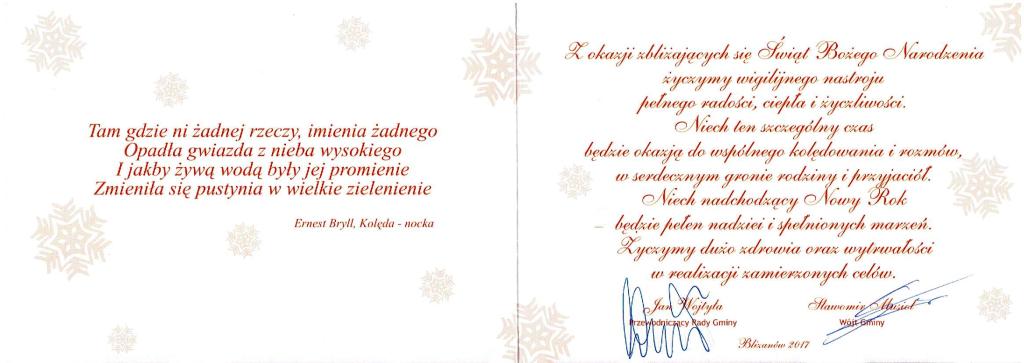 Tam gdzie ni żadnej rzeczy, imienia żadnego
Opadła gwiazda z nieba wysokiego
I jakby żywą wodą były jej promienie
Zmieniła się pustynia w wielkie zielenienie
Ernest Bryll, Kolęda - nocka
Z okazji zbliżających się Świąt Bożego Narodzenia
życzymy wigilijnego nastroju
pełnego radości, ciepła i życzliwości.
Niech ten szczególny czas
będzie okazją do wspólnego kolędowania i rozmów,
w serdecznym gronie rodziny i przyjaciół.
Niech nadchodzący Nowy Rok
będzie pełen nadziei i spełnionych marzeń.
Życzymy dużo zdrowia oraz wytrwałości
w realizacji zamierzonych celów.
Jan Wojtyła Sławomir Muzioł
Przewodniczący Rady Gminy Wójt Gminy
Bliżanów 2017